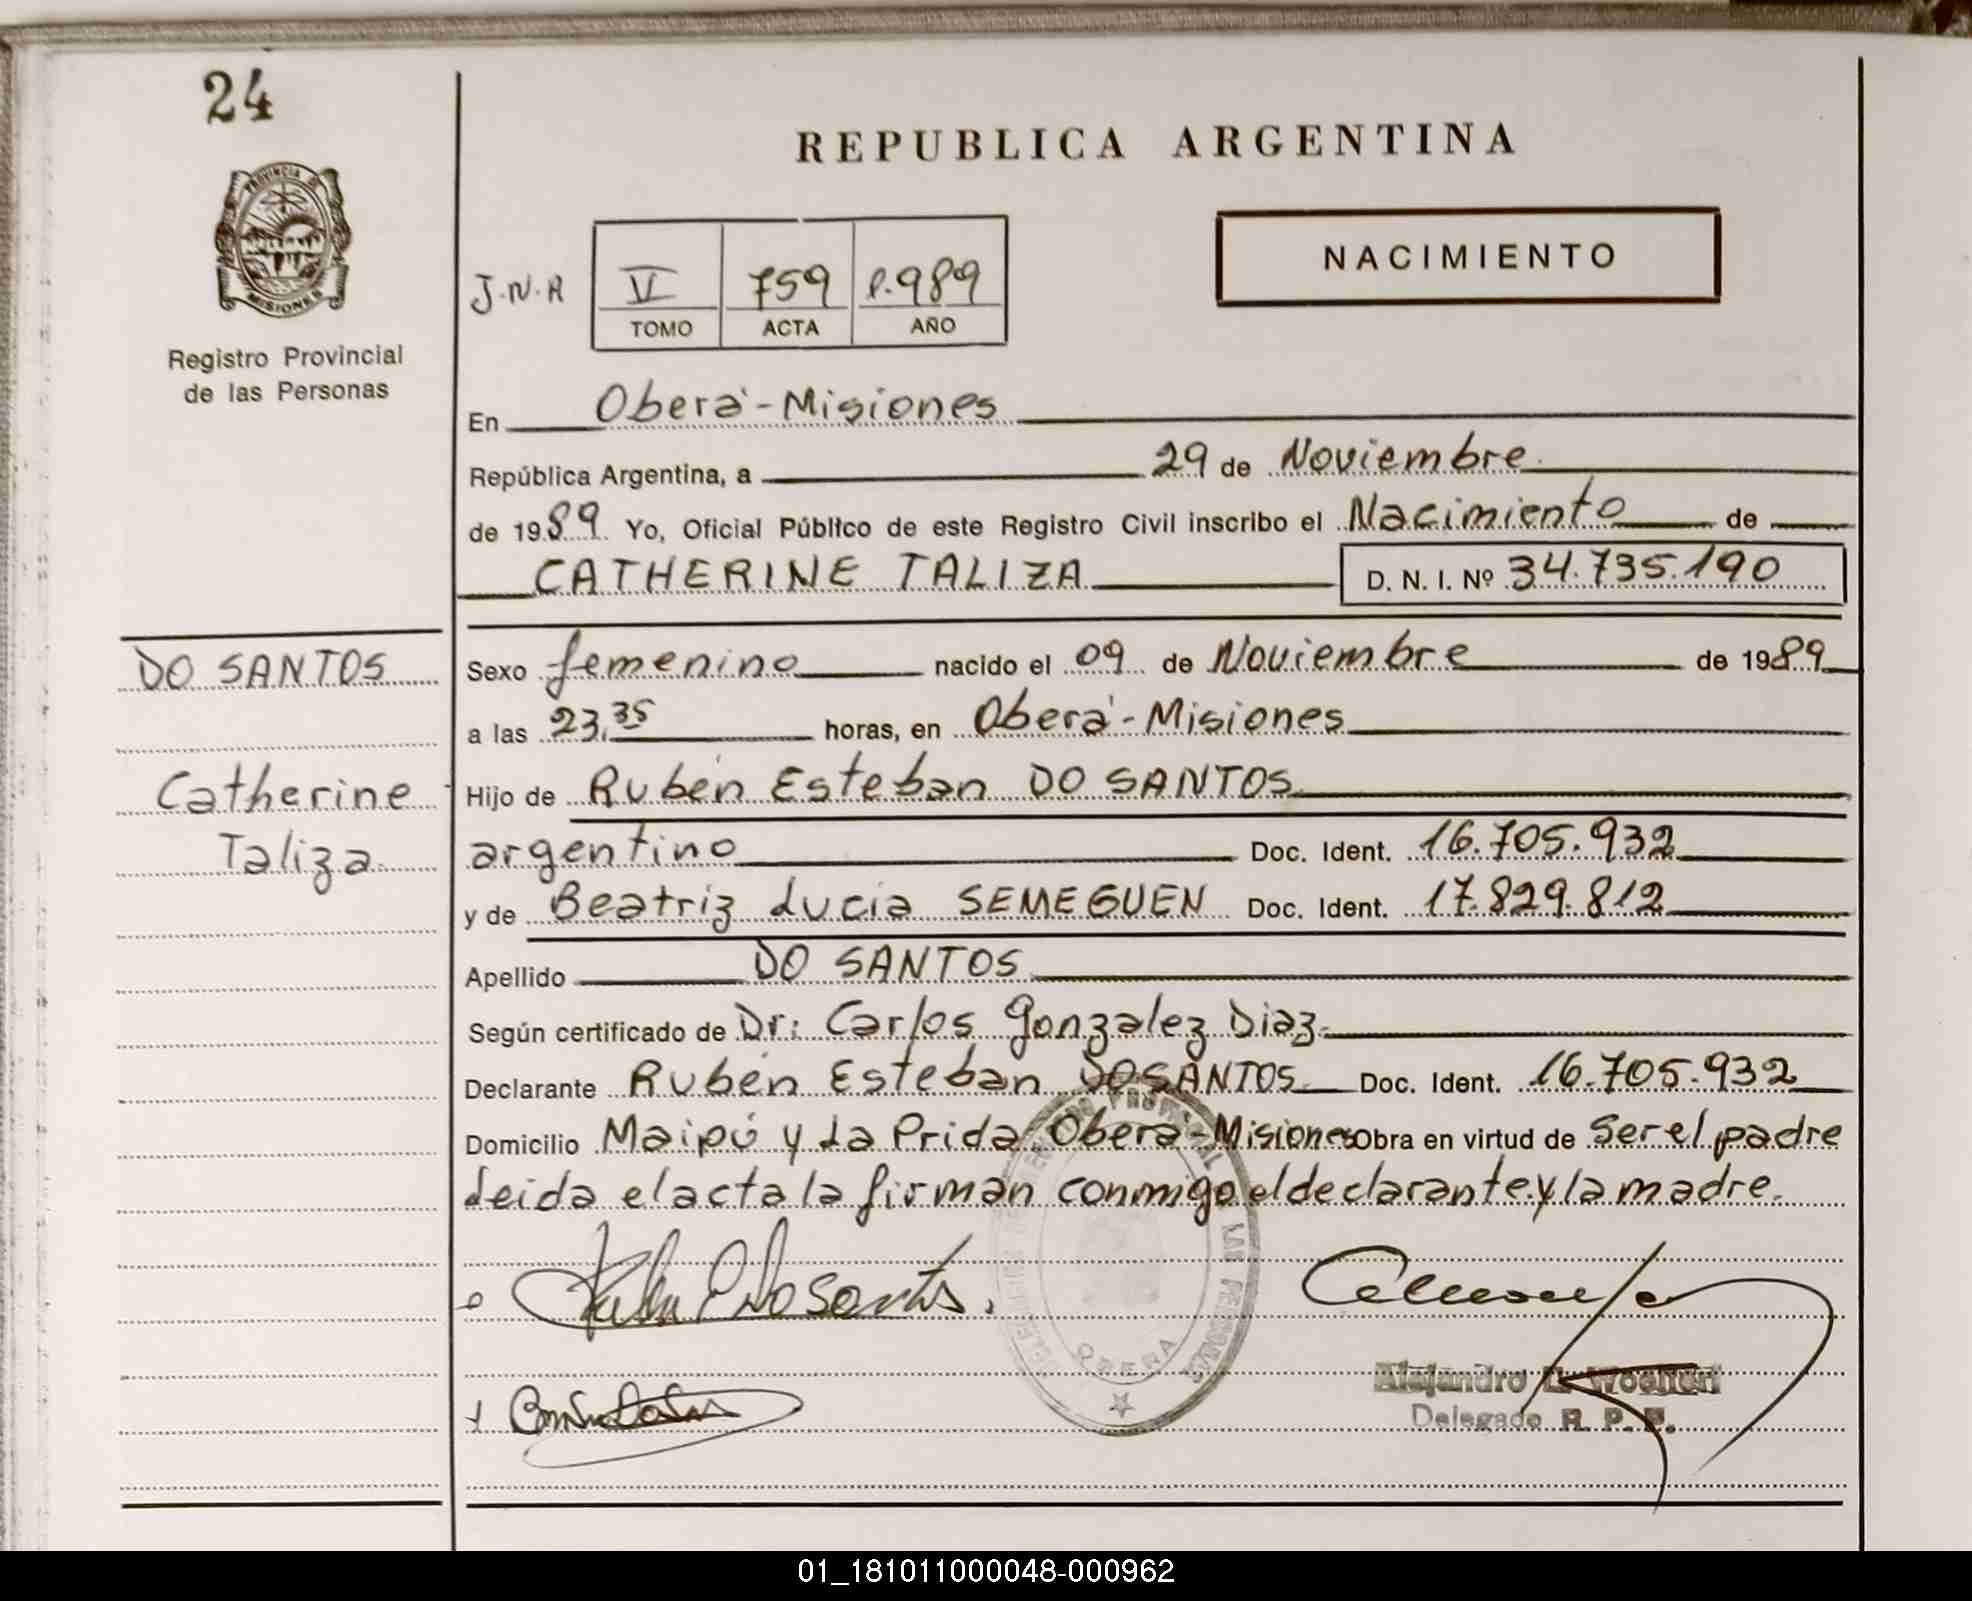 24
REPUBLICA ARGENTINA
PROVINCIA DE
MISIONES
Registro Provincial
de las Personas
NACIMIENTO
J.N.A VI 759 1.989
TOMO ACTA AÑO
En Oberá-Misiones
República Argentina, a 29 de Noviembre
de 1989 Yo, Oficial Público de este Registro Civil inscribo el Nacimiento de
CATHERINE TALIZA D. N. I. Nº 34.735.190
DO SANTOS
Catherine
Taliza
Sexo femenino nacido el 09 de Noviembre de 1989
a las 23,35 horas, en Oberá-Misiones
Hijo de Rubén Esteban DO SANTOS
argentino Doc. Ident. 16.705.932
y de Beatriz Lucia SEMEGUEN Doc. Ident. 17.829.812
Apellido DO SANTOS
Según certificado de Dr: Carlos Gonzalez Diaz
Declarante Rubén Esteban DO SANTOS Doc. Ident. 16.705.932
Domicilio Maipú y La Prida Oberá-Misiones Obra en virtud de ser el padre
Leida el acta la firman conmigo el declarante y la madre.
OBERA
Alejandro
Delegado R. P. P.
01_181011000048-000962